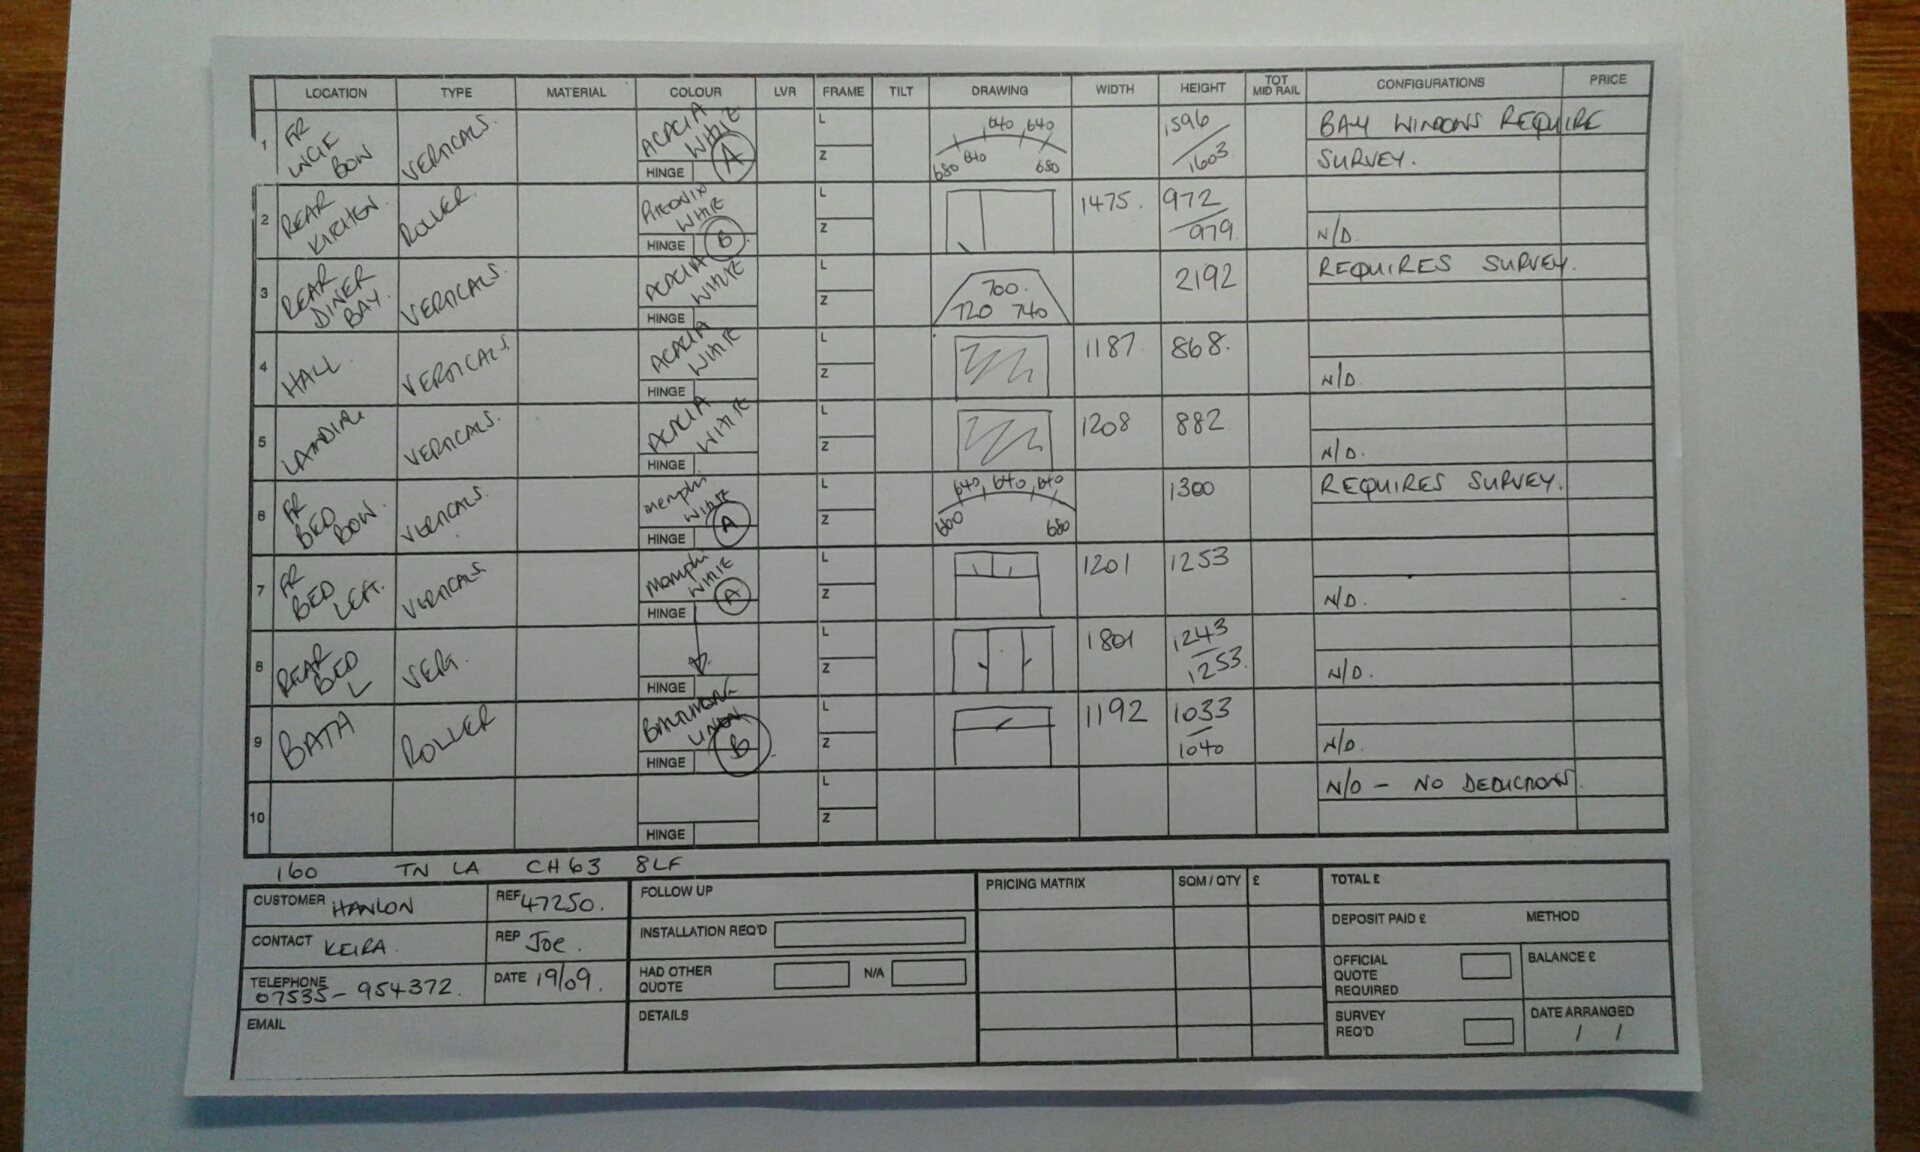 LOCATION TYPE MATERIAL COLOUR LVR FRAME TILT DRAWING WIDTH HEIGHT TOT MID RAIL CONFIGURATIONS PRICE
1 FR BOW VERTICALS. ACACIA WHITE A HINGE L Z 680 640 640 640 680 1596 / 1603 BAY WINDOWS REQUIRE SURVEY.
2 REAR KITCHEN. ROLLER. WHITE B HINGE L Z 1475. 972 / 979 N/D.
3 REAR DINER BAY. VERTICALS. ACACIA WHITE HINGE L Z 700. 720 740 2192 REQUIRES SURVEY.
4 HALL. VERTICALS. ACACIA WHITE HINGE L Z 1187 868. N/D.
5 VERTICALS. ACACIA WHITE HINGE L Z 1208 882 N/D.
6 FR BED BOW. VERTICALS. MEMPHI WHITE A HINGE L Z 640 640 640 680 1300 REQUIRES SURVEY.
7 FR BED LEFT. VERTICALS MEMPHI WHITE A HINGE L Z 1201 1253 N/D.
8 REAR BED L VERT. HINGE L Z 1801 1243 / 1253. N/D.
9 BATH ROLLER B HINGE L Z 1192 1033 / 1040 N/D.
10 HINGE L Z N/D - NO DEDUCTIONS.
160 TN LA CH63 8LF
CUSTOMER HANLON REF 47250.
CONTACT KEIRA. REP Joe.
TELEPHONE 07535-954372. DATE 19/09.
EMAIL
FOLLOW UP
INSTALLATION REQ'D
HAD OTHER QUOTE N/A
DETAILS
PRICING MATRIX SQM / QTY £
TOTAL £
DEPOSIT PAID £ METHOD
OFFICIAL QUOTE REQUIRED BALANCE £
SURVEY REQ'D DATE ARRANGED / /